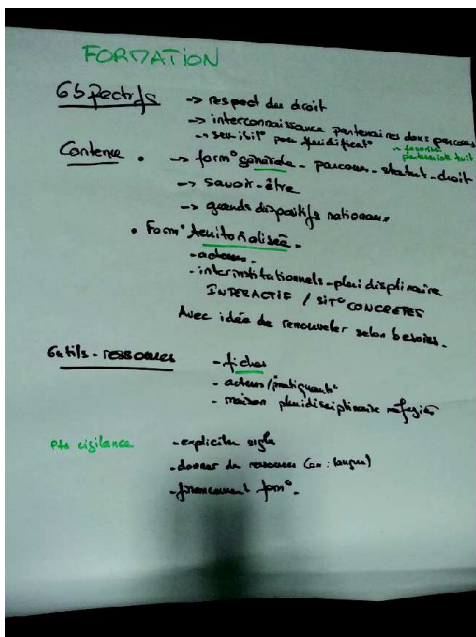 FORMATION
Objectifs -> respect du droit
-> interconnaissance partenaires dans parcours
-> sensibil° pour fluidificat°
-> favorise
partenariats
Contenu • -> form° générale - parcours - statut - droit
-> savoir-être
-> grands dispositifs nationaux
• Form° territorialisée -
- acteurs -
- interinstitutionnels - pluridisplinaire
INTERACTIF / SIT° CONCRETES
Avec idée de renouveler selon besoins.
Outils - ressources - fiches
- acteurs/pratiquants
- maison pluridisciplinaire réfugiés
Pts vigilance - expliciter sigle
- donner des ressources (ex : langue)
- financement form° -